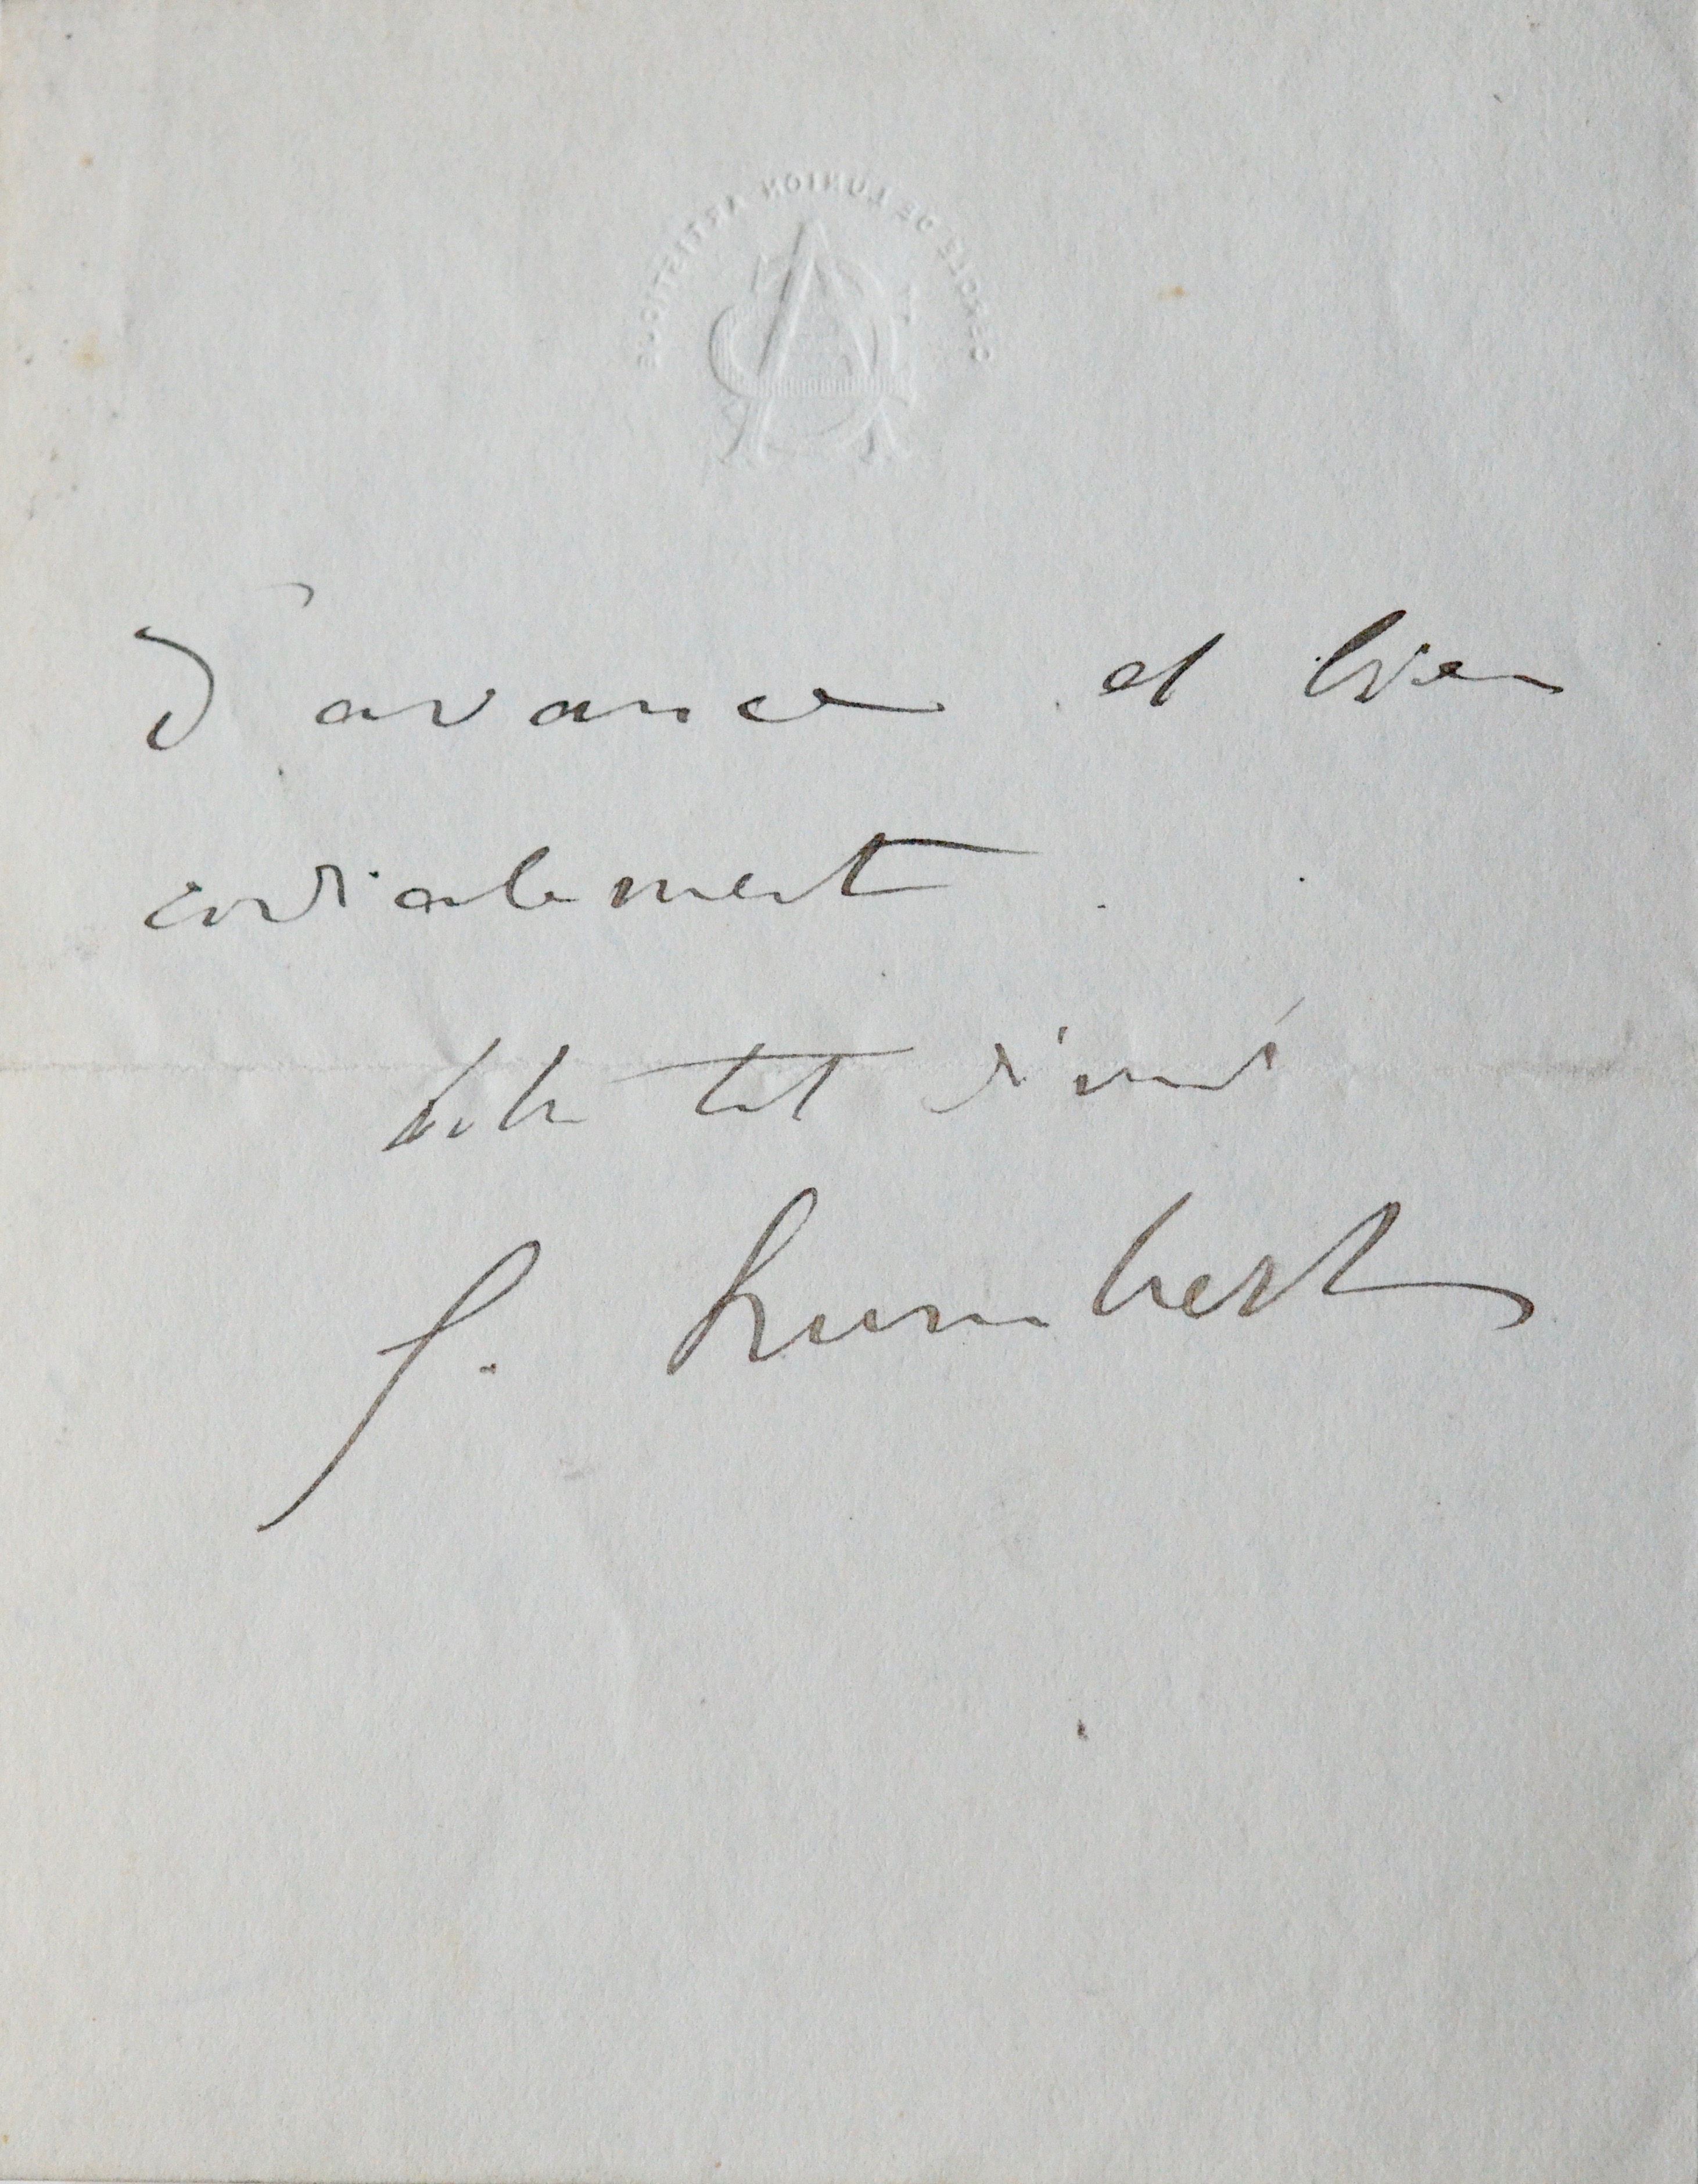 CERCLE DE L'UNION ARTISTIQUE
d'avance et bien
cordialement.
Votre tout dévoué
f. humbert